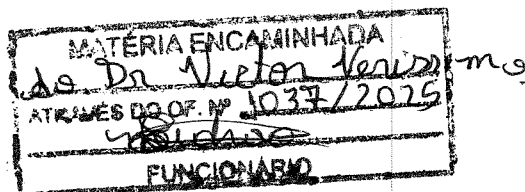 MATÉRIA ENCAMINHADA
ao Dr Victor Veríssimo
ATRAVÉS DO OF. Nº 1037/2025
FUNCIONÁRIO